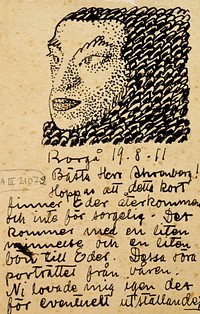 Borgå 19-8-11
Bästa Herr Ahrenberg!
Hoppas att detta kort
finner Eder återkommen
och inte för sorgelig. Det
kommer med en liten
och en liten
bön till Eder. Dessa
porträttet från våren.
Ni lovade mig igen det
för eventuell utställande